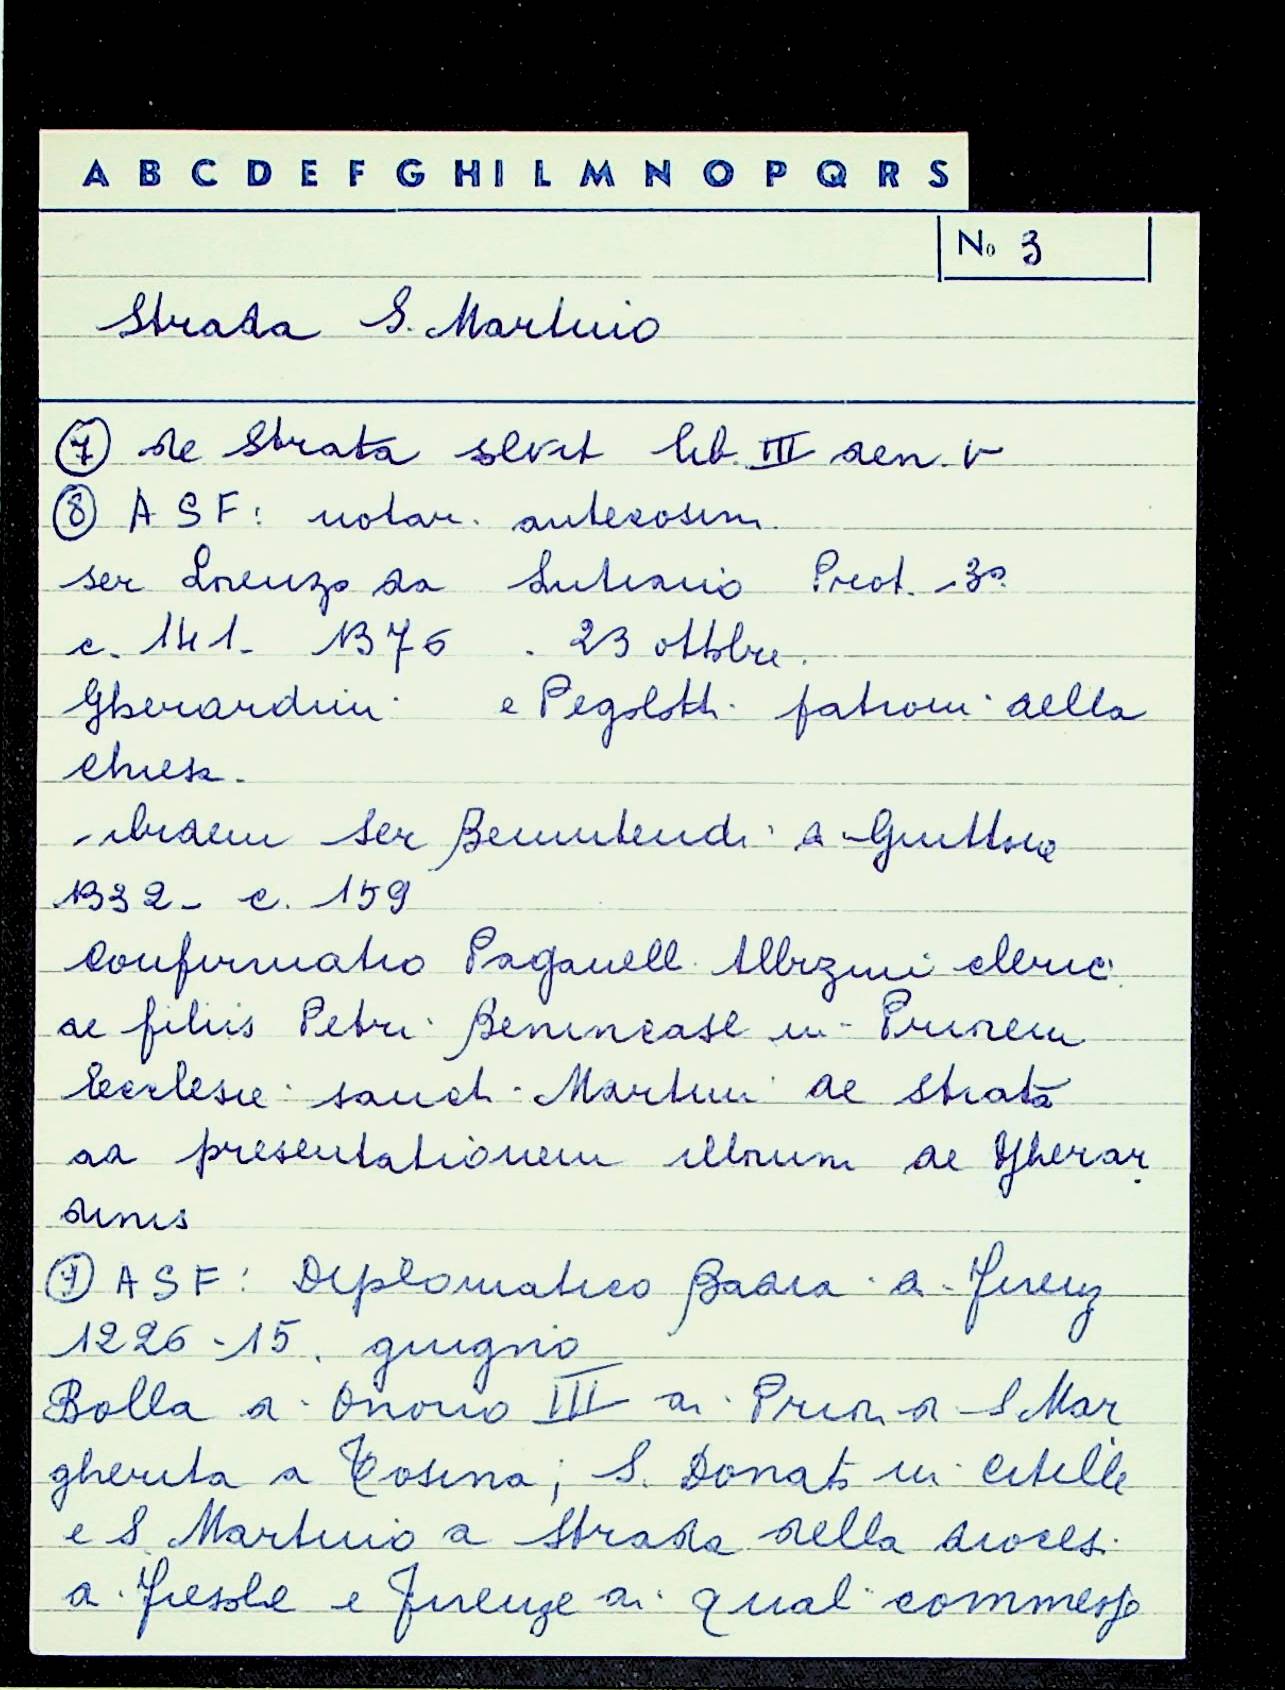 A B C D E F G H I L M N O P Q R S
No 3
Strada S. Martino
7 de Strata solvit lib. III den. V
8 A S F: notar. antecosim
ser Lorenzo da Lutiano Prot. 3º
c. 141. 1376 . 23 ottobre.
Gherardini e Pegolotti patroni della
chiesa.
- ibidem ser Benintendi di Guittone
1332 - c. 159
Confirmatio Paganelli Albizini clerici
de filiis Petri Benincase in Priorem
Ecclesie sancti Martini de Strata
ad presentationem illorum de Gherar
dinis
7 A S F: Diplomatico Badia di Firenz
1226 - 15. giugno
Bolla di Onorio III ai Priori di S Mar
gherita a Tosina; S. Donato in Citille
e S. Martino a Strada della diocesi
di Fiesole e Firenze ai quali commesse